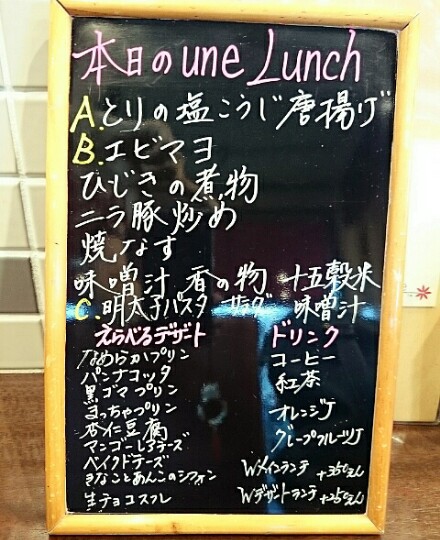 本日のune Lunch
A.とりの塩こうじ唐揚げ
B.エビマヨ
ひじきの煮物
ニラ豚炒め
焼なす
味噌汁 香の物 十五穀米
C.明太子パスタ サラダ 味噌汁
えらべるデザート
なめらかプリン
パンナコッタ
黒ゴマプリン
かっちゃプリン
杏仁豆腐
マンゴーレアチーズ
ベイクドチーズ
きなことあんこのシフォン
生チョコスフレ
ドリンク
コーヒー
紅茶
オレンジJ
グレープフルーツJ
Wメインランチ +350えん
Wデザートランチ +250えん